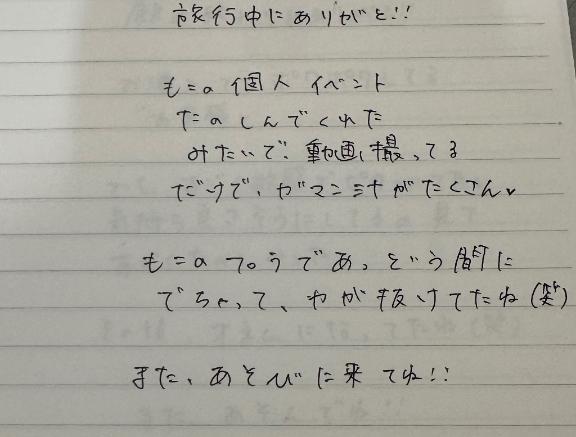 旅行中にありがと!!
もこの個人イベント
たのしんでくれた
みたいで、動画撮ってる
だけで、ガマンミナがたくさん、
もこのプロうであっという間に
でちゃって、力が抜けてたね(笑)
また、あそびに来てね!!